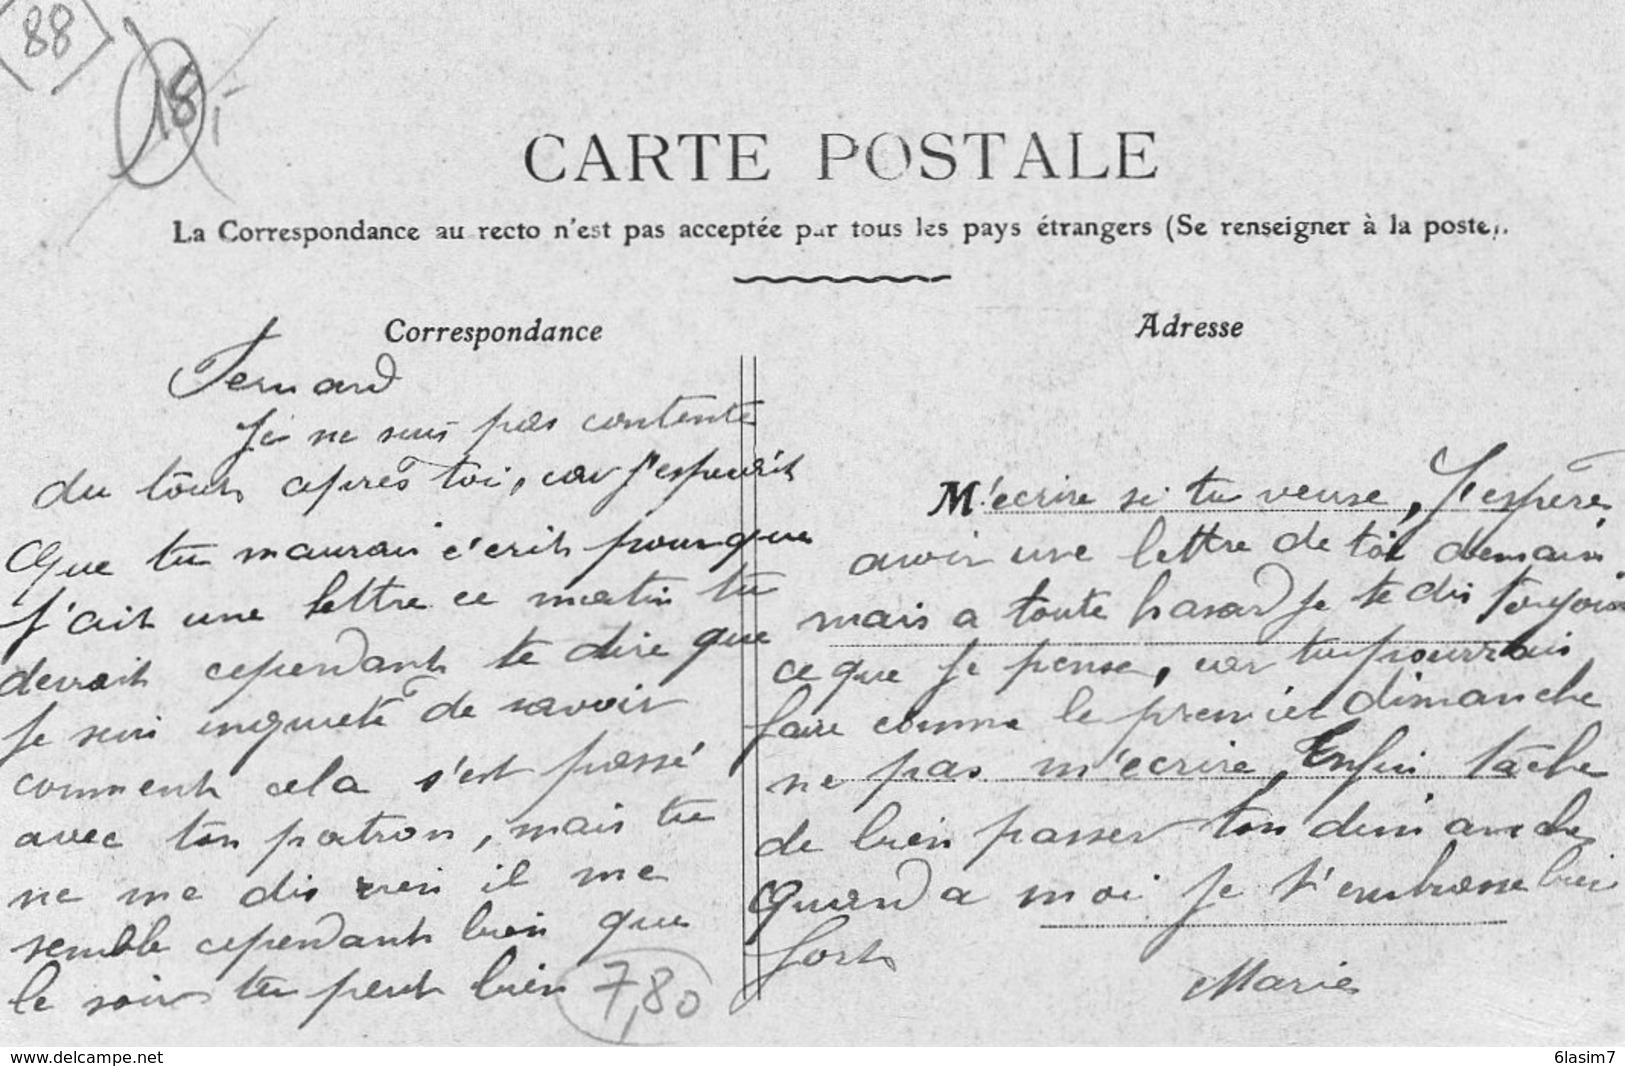 88
18,-
CARTE POSTALE
La Correspondance au recto n'est pas acceptée par tous les pays étrangers (Se renseigner à la poste).
Correspondance
Fernand
Je ne suis pas contente
du tous après toi, car j'esperait
Que tu maurai écrit pourque
j'ait une lettre ce matin tu
devrait cependant te dire que
Je suis inquiète de savoir
comment cela s'est passé
avec ton patron, mais tu
ne me dis rien il me
semble cependant bien que
le soir tu peut bien
7,80
Adresse
M'ecrire si tu veuse, J'espère
avoir une lettre de toi demain
mais a toute hasard Je te dis toujours
ce que Je pense, car tu pourrais
faire comme le premier dimanche
ne pas m'ecrire, Enfin tâche
de bien passer ton dimanche
Quand a moi Je t'embrasse bien
fort
Marie
www.delcampe.net
6lasim7